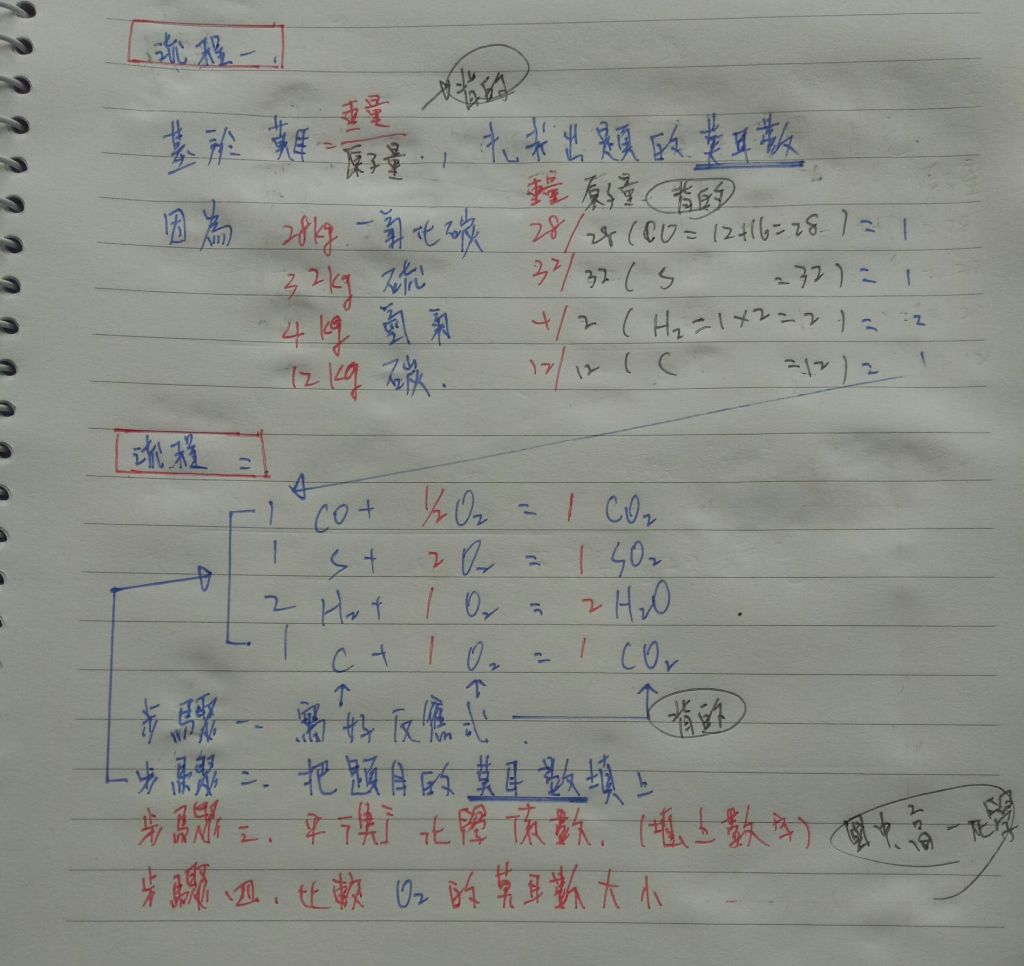 流程一.
背的
莫耳 難=重量/原子量., 先求出題的莫耳數
重量 原子量 背的
因為 28kg 一氧化碳 28/28 (CO=12+16=28) = 1
32kg 硫 32/32 ( S =32) = 1
4kg 氫氣 4/2 ( H₂=1×2=2 ) = 2
12kg 碳. 12/12 ( C =12) = 1
流程二
1 CO + ½ O₂ = 1 CO₂
1 S + 2 O₂ = 1 SO₂
2 H₂ + 1 O₂ = 2 H₂O
1 C + 1 O₂ = 1 CO₂
步驟一. 寫好反應式. 背的
步驟二. 把題目的莫耳數填上
步驟三. 平衡 化學係數. (填上數字) 國中2、高一化學
步驟四. 比較 O₂ 的莫耳數大小